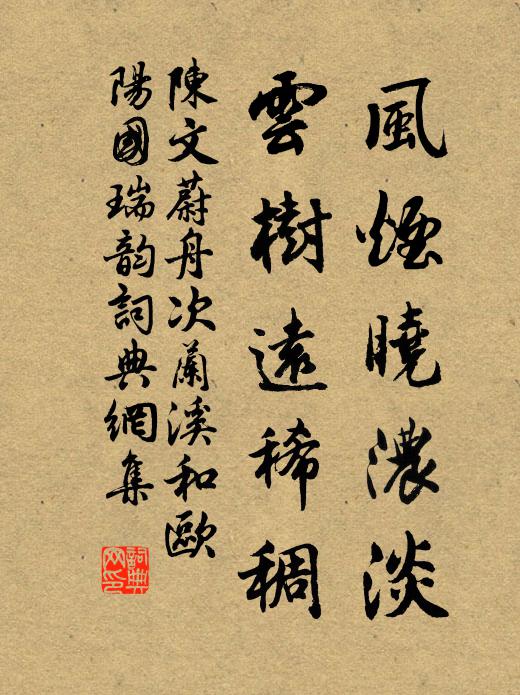 風煙曉濃淡
雲樹遠稀稠
陳文蔚舟次蘭溪和歐
陽國瑞韵詞典網集
詞典网印